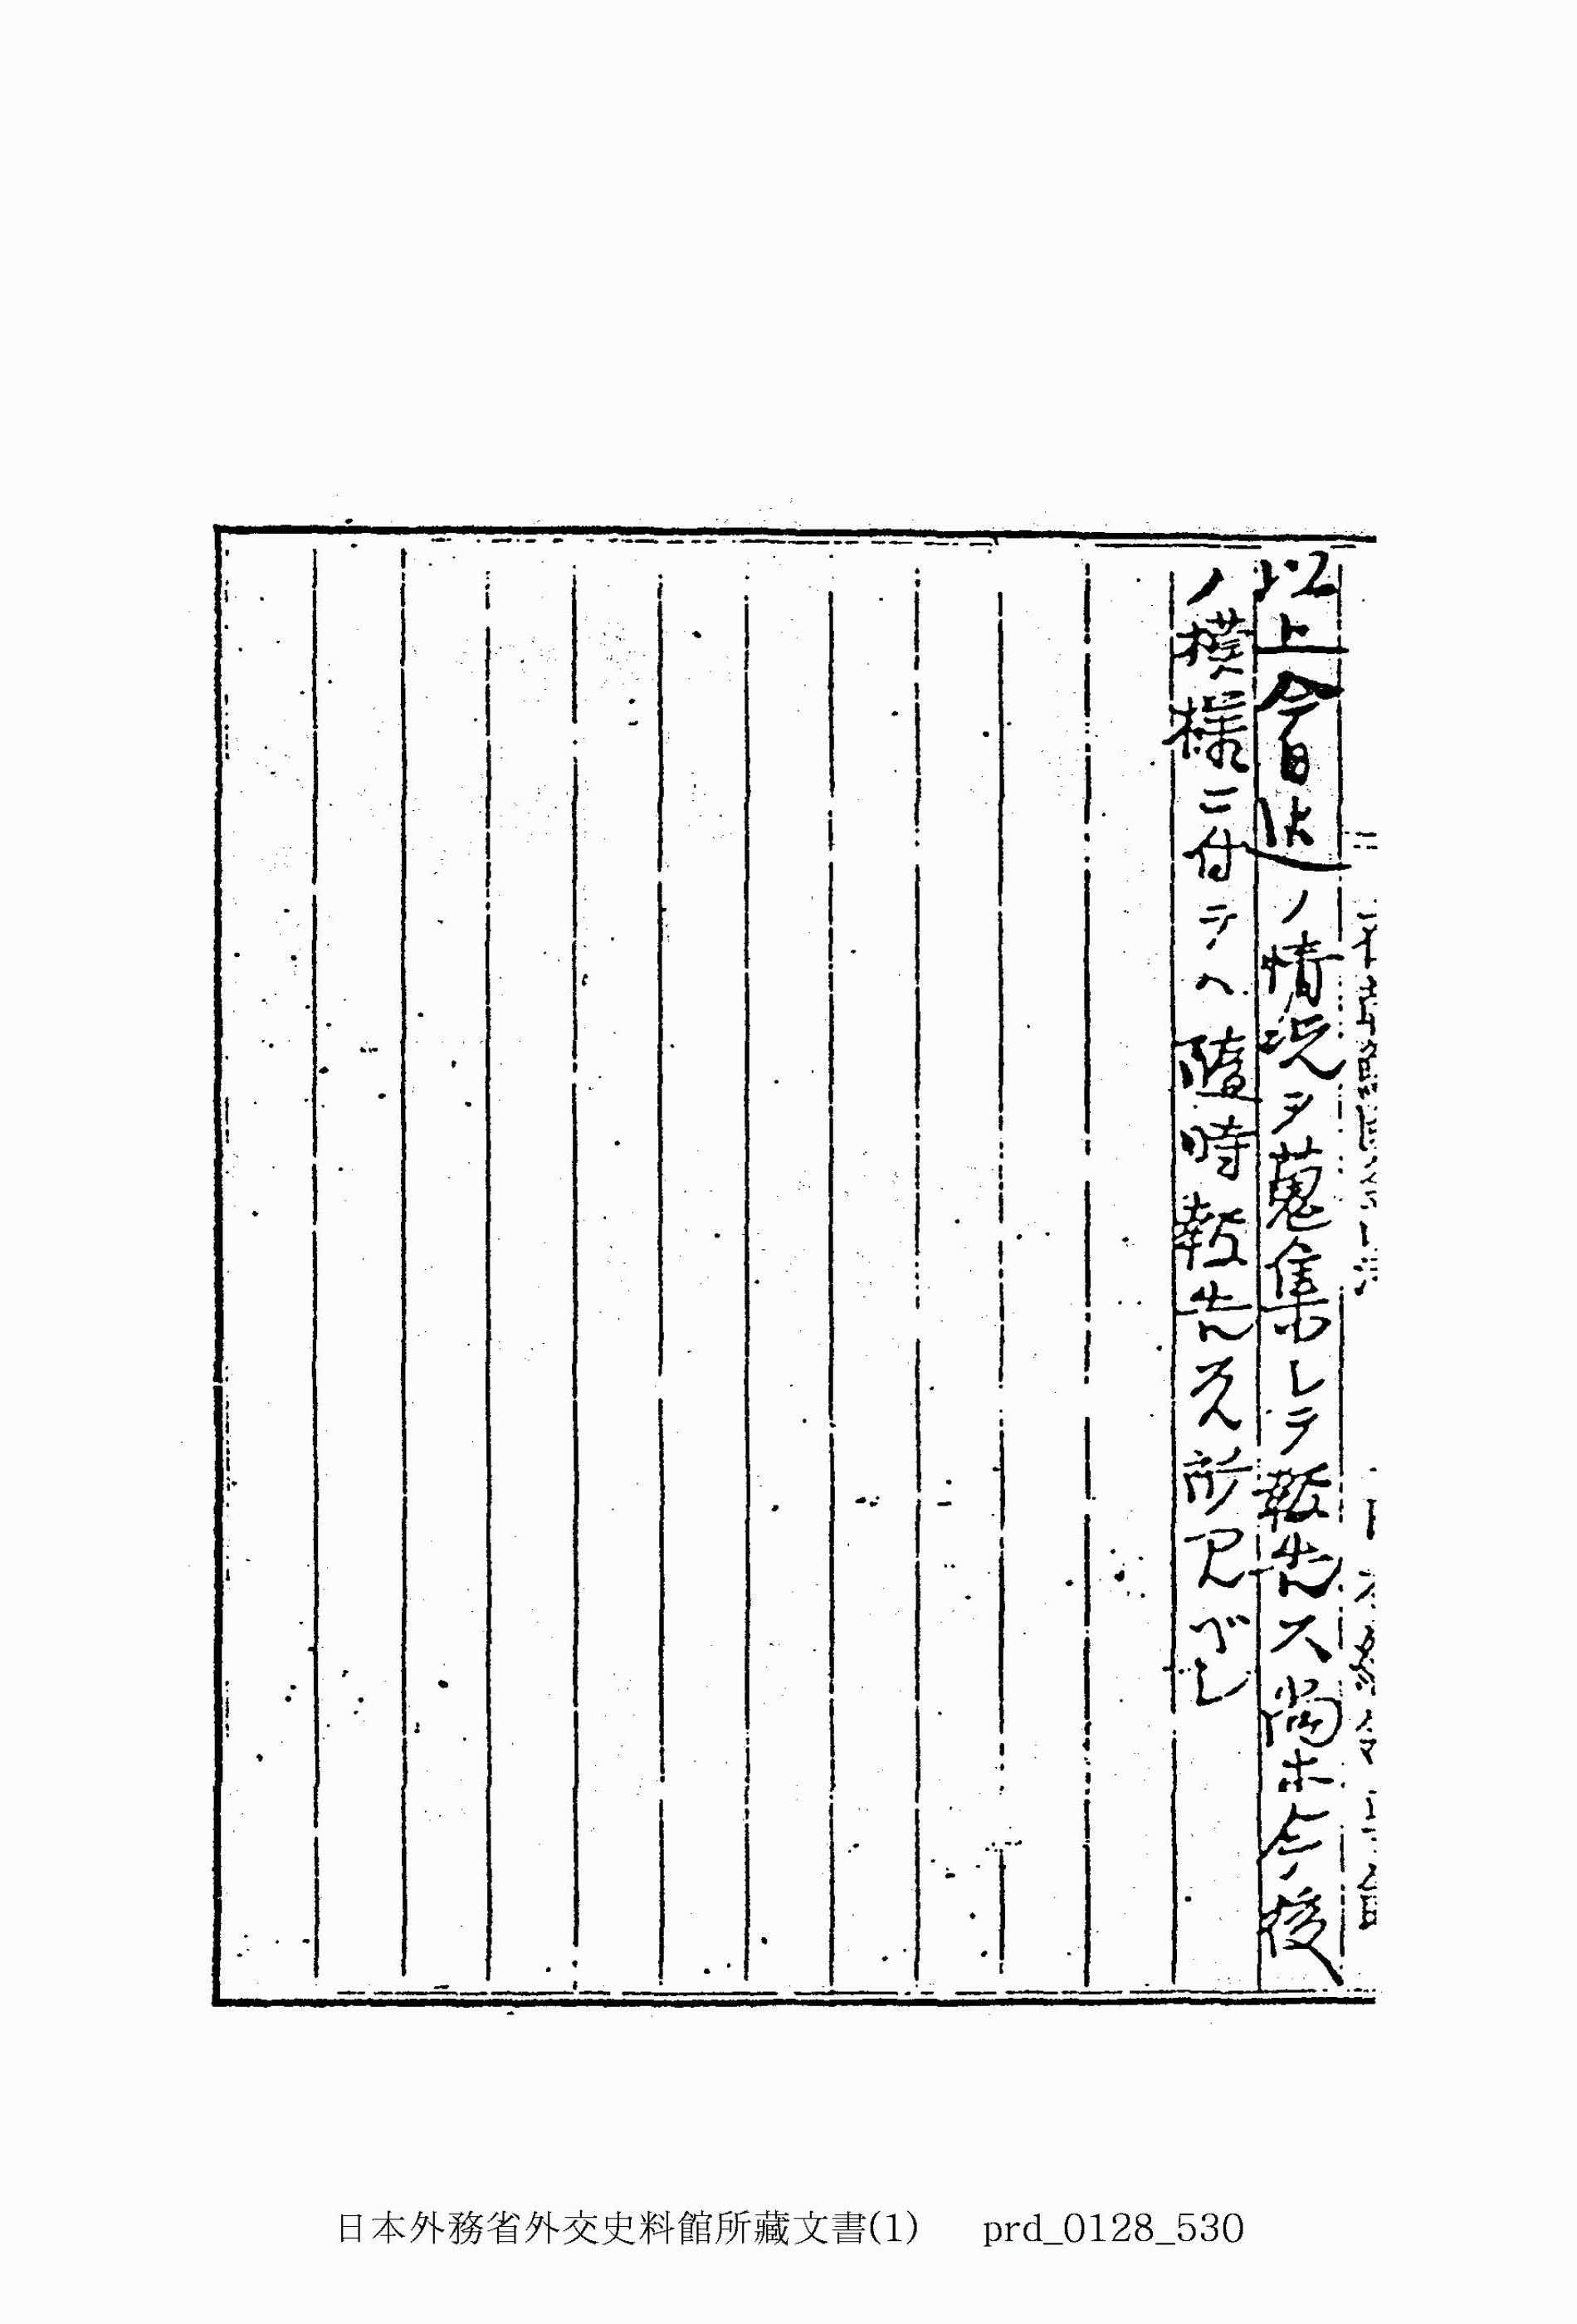 以上今日迄ノ情況ヲ蒐集シテ報告ス尚ホ今後
ノ模様ニ付テハ隨時報告スル所アルベシ
日本外務省外交史料館所藏文書(1) prd_0128_530